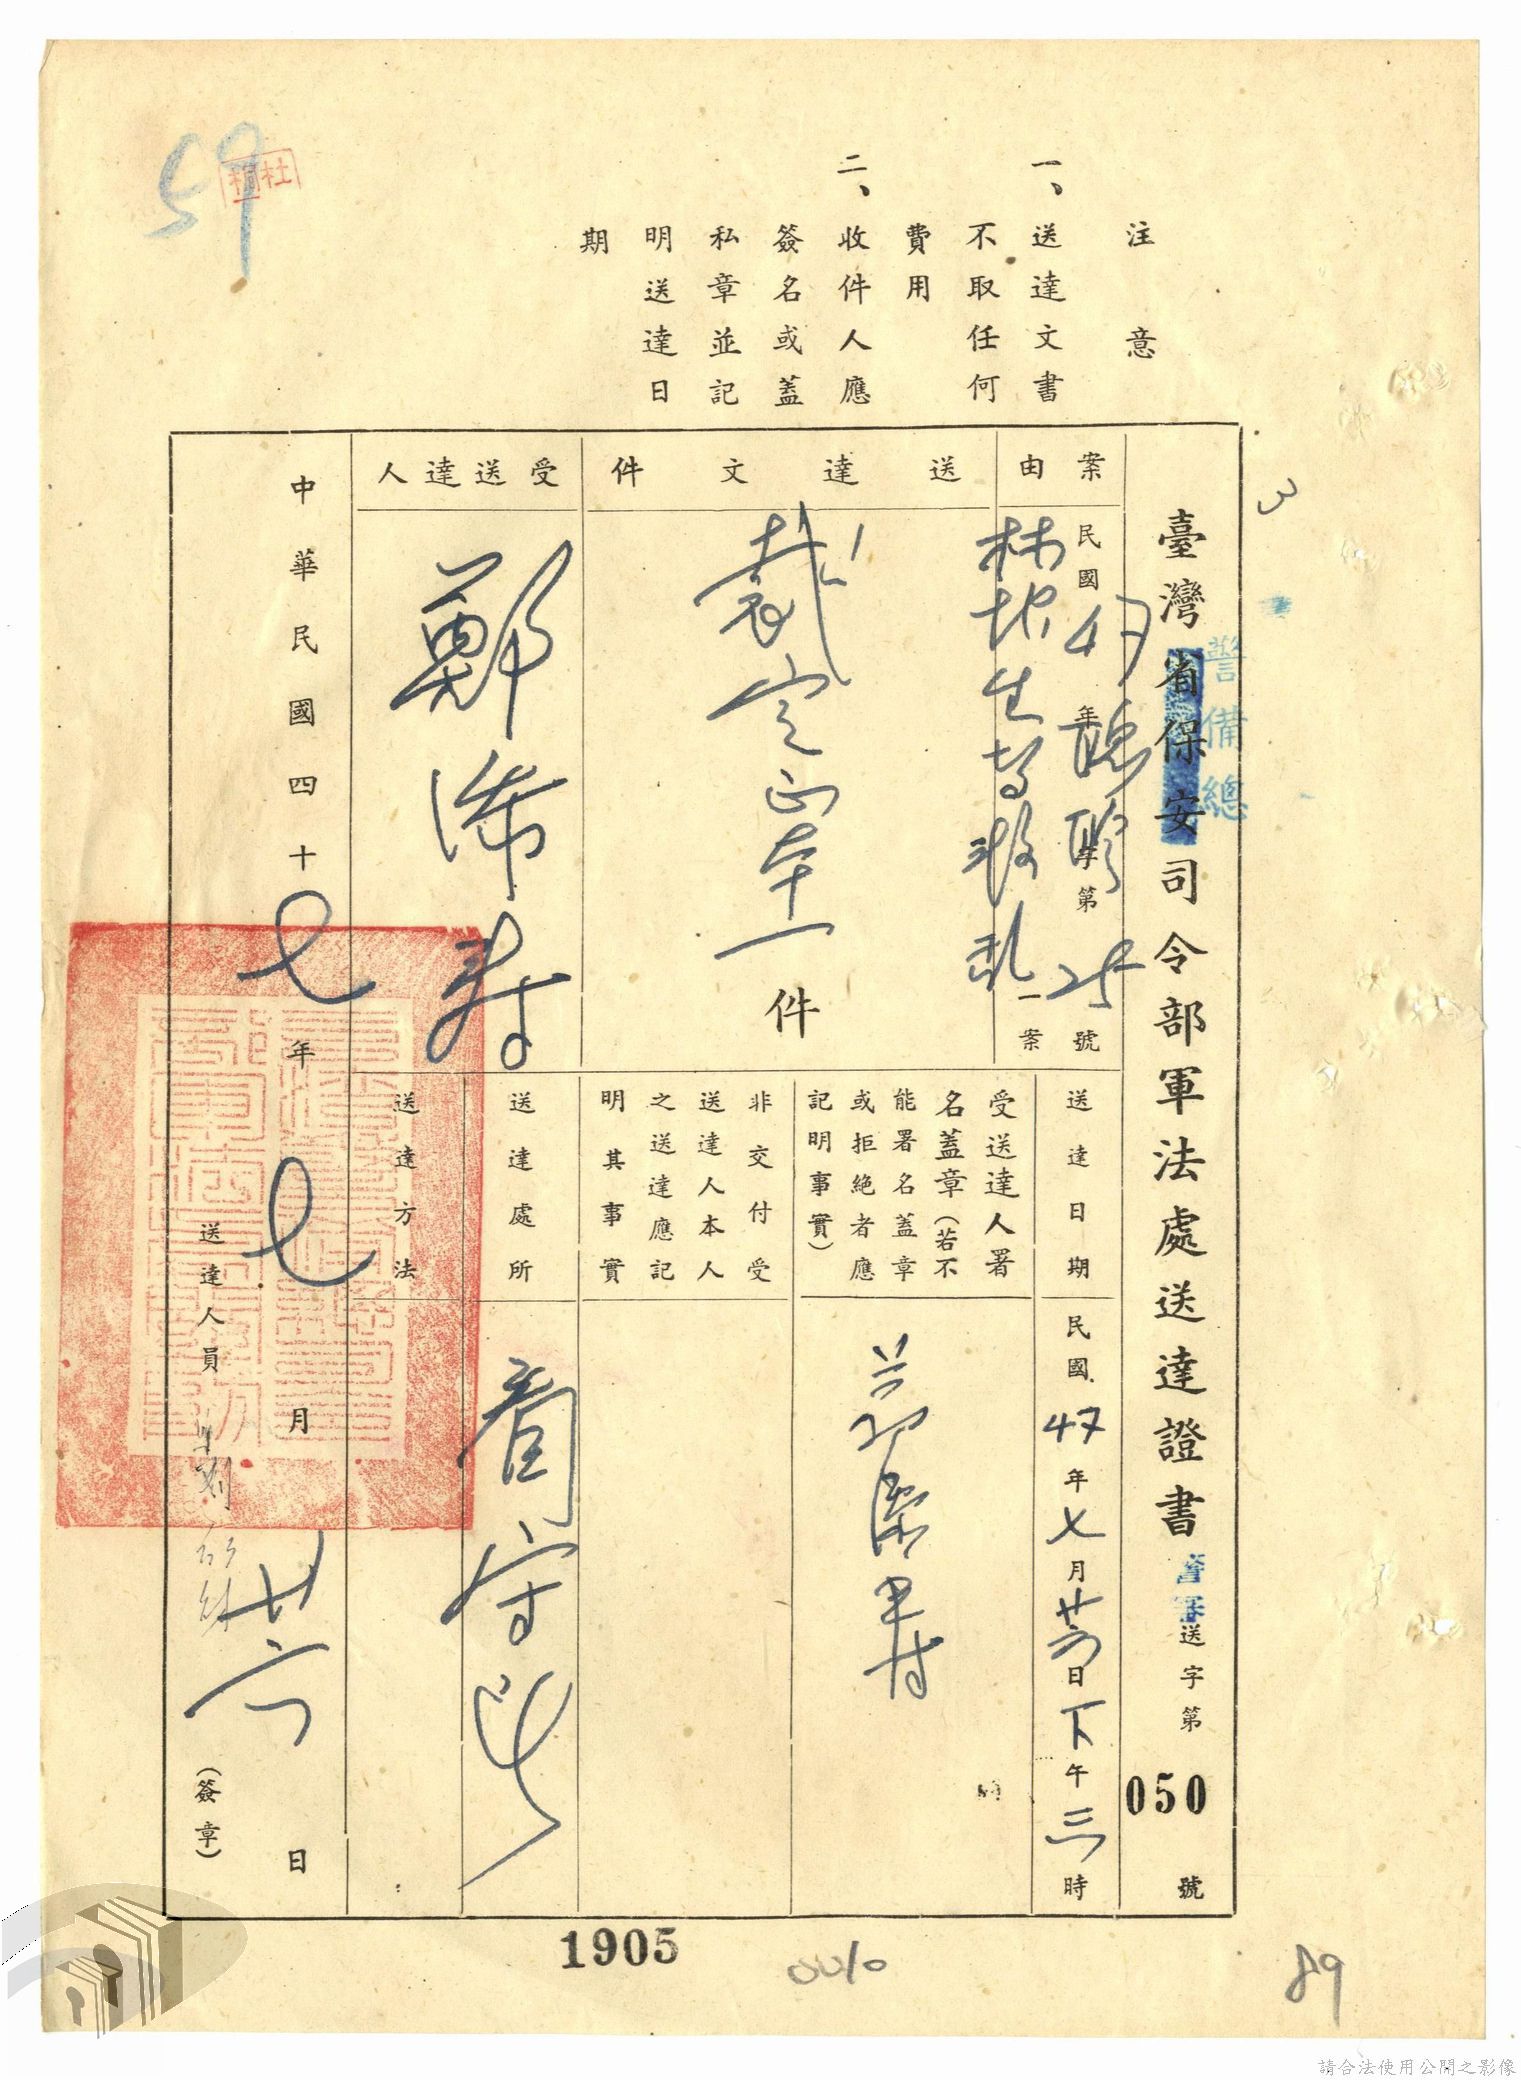 注意
一、送達文書
不取任何
費用
二、收件人應
簽名或蓋
私章並記
明送達日
期
59
杜桓
3
臺灣省保安司令部軍法處送達證書
警備總
送字第050號
案由
民國47年聽聆字第25號
林地生等叛亂一案
送達文件
裁定正本一件
受送達人
鄭沛寿
送達日期
民國47年七月廿六日下午三時
受送達人署
名蓋章(若不
能署名蓋章
或拒絶者應
記明事實)
非交付受
送達人本人
之送達應記
明其事實
送達處所
看守所
送達方法
中華民國四十七年七月廿六日
送達人員
(簽章)
1905
0010
89
請合法使用公開之影像